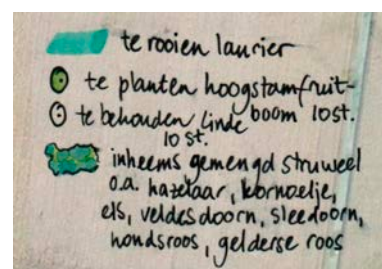 te rooien laurier
te planten hoogstamfruit-
boom 10st.
te behouden linde
10 st.
inheems gemengd struweel
o.a. hazelaar, kornoelje,
els, veldesdoorn, sleedoorn,
hondsroos, gelderse roos